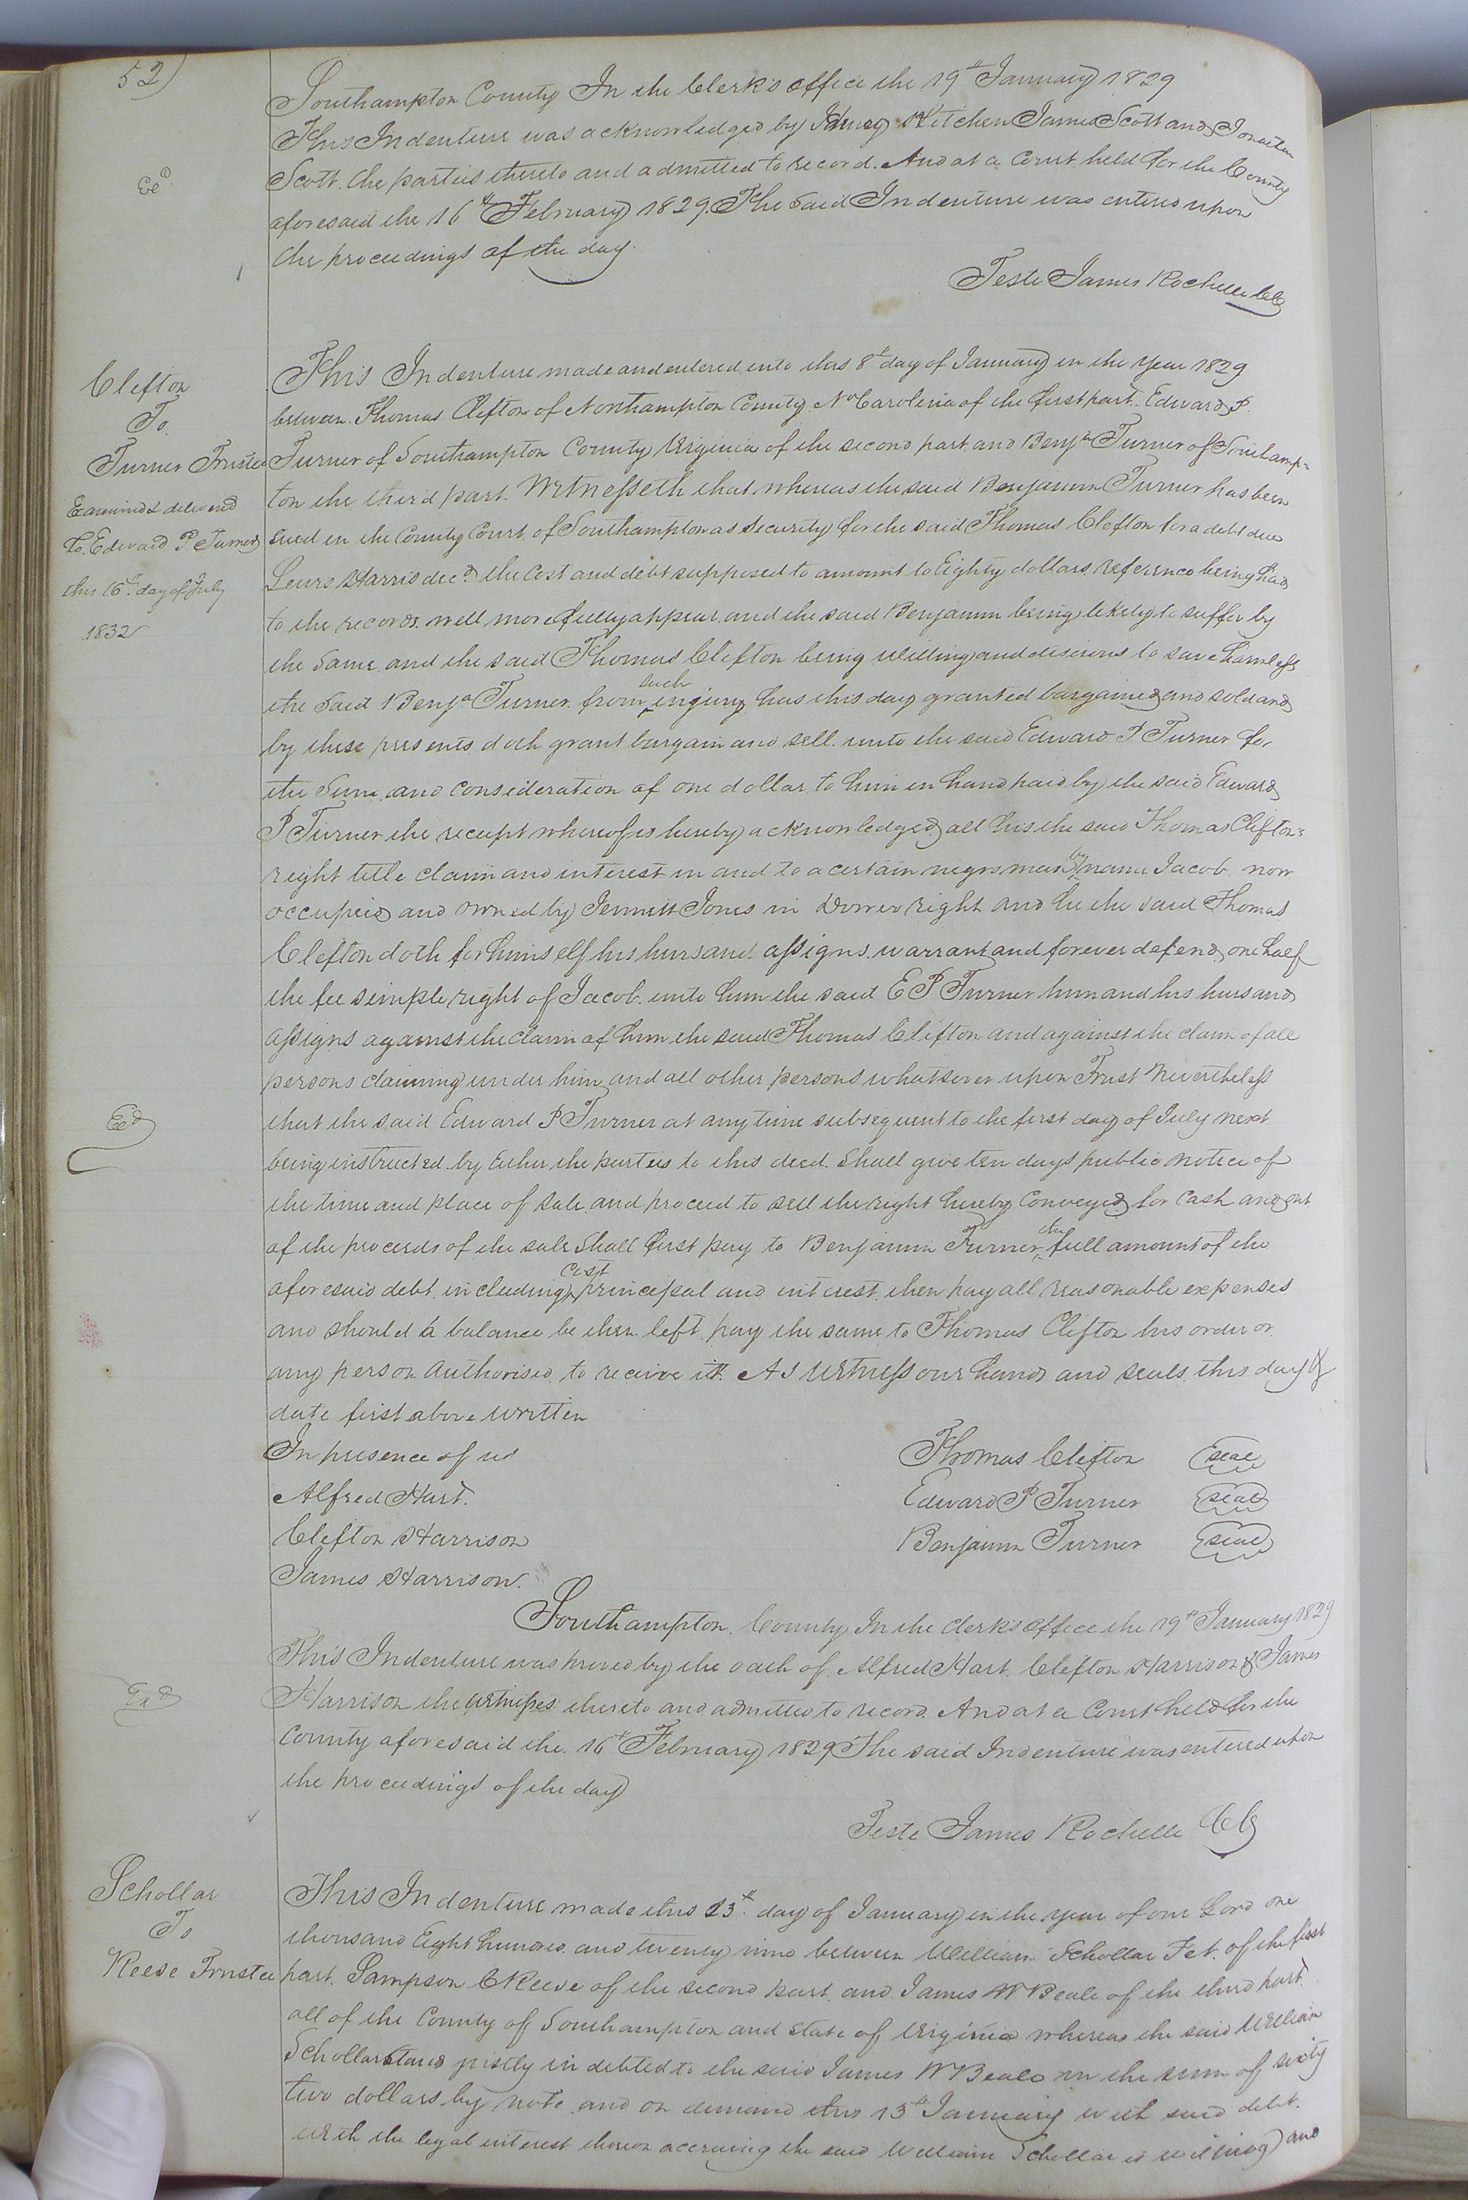 52)
Southampton County In the Clerk's office the 19th January 1829
This Indenture was acknowledged by Kitchen James Scott and
Scott the parties thereto and admitted to record. And at a Court held for the County
aforesaid the 16th February 1829. The said Indenture was entered upon
the proceedings of the day.
Teste James Rochelle
Clifton
To
Turner Trustee
Examined & delivered
To Edward P Turner
this 16th day of July
1832
This Indenture made and entered into this 8th day of January in the Year 1829
between Thomas Clifton of Northampton County No Carolina of the first part Edward P.
Turner of Southampton County Virginia of the second part and Benja Turner of Southamp=
ton the third part. Witnesseth that whereas the said Benjamin Turner has been
sued in the County Court of Southampton as security for the said Thomas Clifton for a debt due
Lewis Harris decd the cost and debt supposed to amount to Eighty dollars, reference being had
to the records will more fully appear and the said Benjamin being likely to suffer by
the same and the said Thomas Clifton being willing and desirous to save harmless
the said Benja Turner from such injury has this day granted bargained and sold and
by these presents doth grant bargain and sell unto the said Edward P Turner for
the sum and consideration of one dollar to him in hand paid by the said Edward
P Turner the receipt whereof is hereby acknowledged all his the said Thomas Clifton's
right title claim and interest in and to a certain negro man by name Jacob now
occupied and owned by Jones in Dower right and he the said Thomas
Clifton doth for himself his heirs and assigns warrant and forever defend one half
the fee simple right of Jacob unto him the said E P Turner him and his heirs and
assigns against the claim of him the said Thomas Clifton and against the claim of all
persons claiming under him and all other persons whatsoever upon Trust Nevertheless
that the said Edward P Turner at any time subsequent to the first day of July next
being instructed by Either the parties to this deed shall give ten days public notice of
the time and place of sale and proceed to sell the right hereby conveyed for cash and out
of the proceeds of the sale shall first pay to Benjamin Turner the full amount of the
aforesaid debt including Cost principal and interest then pay all reasonable expenses
and should a balance be then left pay the same to Thomas Clifton his order or
any person authorised to receive it. As Witness our hands and seals this day &
date first above written
In presence of us
Alfred Hart.
Clifton Harrison
James Harrison.
Thomas Clifton seal
Edward P Turner seal
Benjamin Turner seal
Southampton County In the Clerk's office the 19th January 1829
This Indenture was proved by the oath of Alfred Hart Clifton Harrison & James
Harrison the witnesses thereto and admitted to record. And at a Court held for the
County aforesaid the 16th February 1829 The said Indenture was entered upon
the proceedings of the day
Teste James Rochelle
Schollar
To
Reese Trustee
This Indenture made this 13th day of January in the year of our Lord one
thousand Eight hundred and twenty nine between William Schollar of the first
part Sampson C Reese of the second part and James W Beale of the third part
all of the County of Southampton and state of Virginia whereas the said William
Schollar stands justly indebted to the said James W Beale in the sum of sixty
two dollars by note and on demand this 13th January with said debt
with the legal interest thereon accruing the said William Schollar is willing and